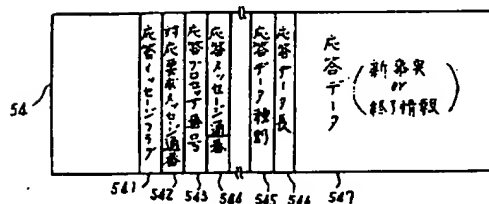 54
応答メッセージフラグ
対応要求メッセージ通番
応答プロセッサ番号
応答メッセージ通番
応答データ種別
応答データ長
応答データ
(新事実
or
終了情報)
541
542
543
544
545
546
547